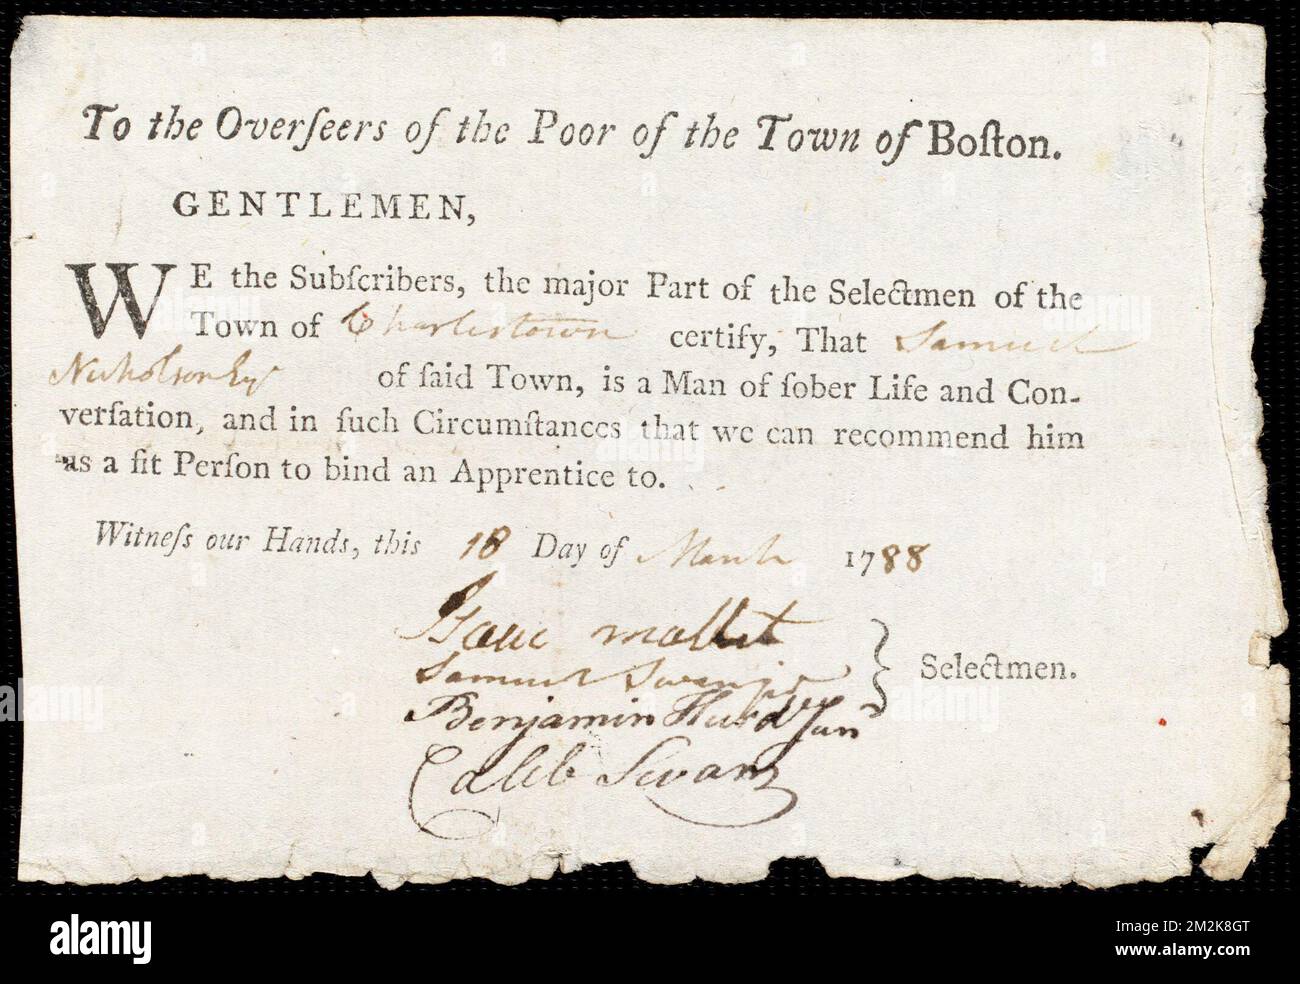 To the Overſeers of the Poor of the Town of Boſton.
GENTLEMEN,
WE the Subſcribers, the major Part of the Selectmen of the
Town of Charlestown certify, That Samuel
Nicholson Esqr of ſaid Town, is a Man of ſober Life and Con-
verſation, and in ſuch Circumſtances that we can recommend him
as a fit Perſon to bind an Apprentice to.
Witneſs our Hands, this 18 Day of March 1788
Isaac Mallet
Samuel Swan jr
Benjamin Hurd Jun
Caleb Swan
Selectmen.
alamy
Image ID: 2M2K8GT
www.alamy.com